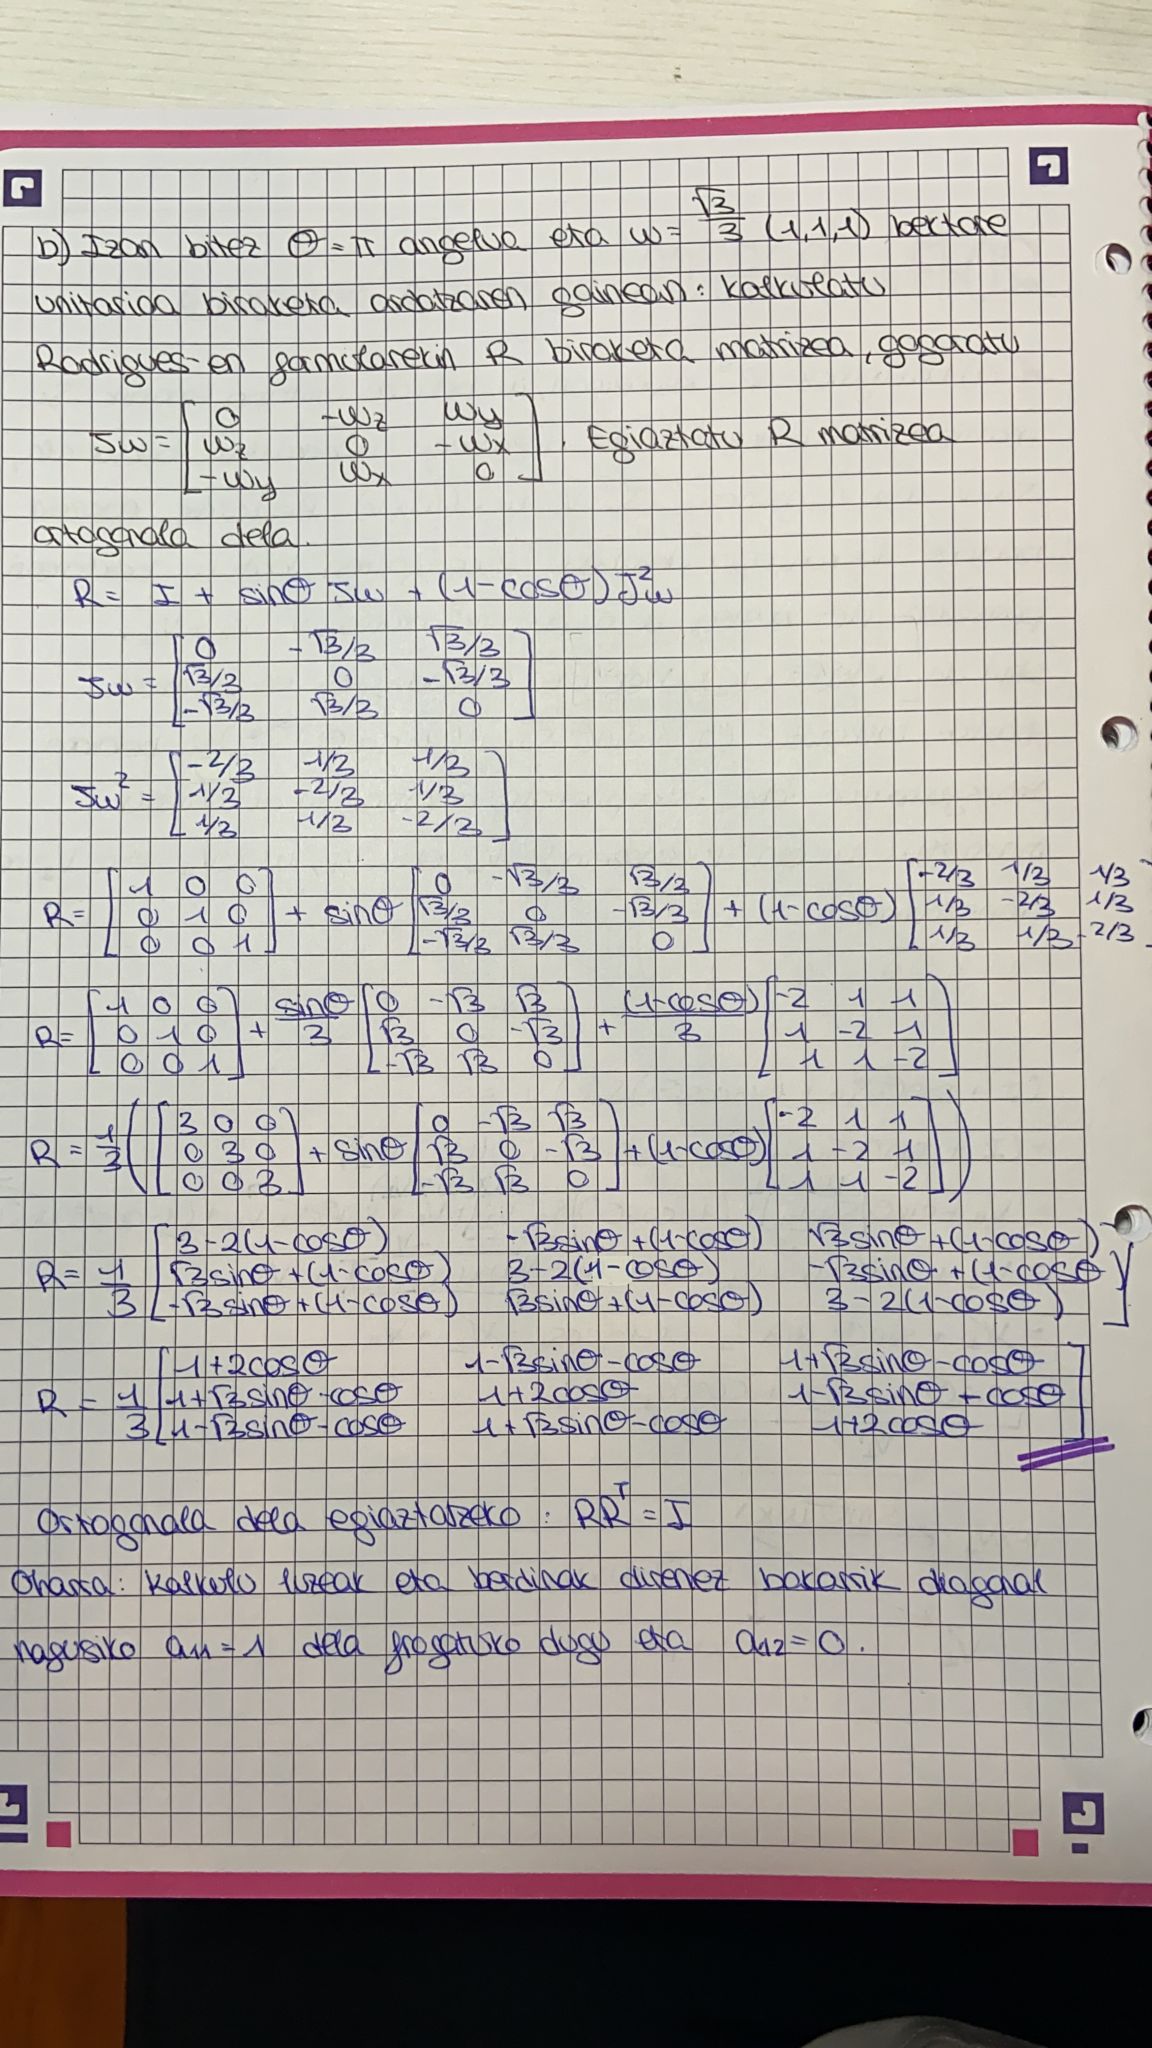 b) Izan bitez θ=π angelua eta w= √3/3 (1,1,1) bektore
unitarioa biraketa ardatzaren gainean: kalkulatu
Rodrigues-en formularekin R biraketa matrizea, gogoratu
Jw = [0 -wz wy
wz 0 -wx
-wy wx 0]. Egiaztatu R matrizea
ortogonala dela.
R= I + sinθ Jw + (1-cosθ)Jw²
Jw = [0 -√3/3 √3/3
√3/3 0 -√3/3
-√3/3 √3/3 0]
Jw² = [-2/3 1/3 1/3
1/3 -2/3 1/3
1/3 1/3 -2/3]
R= [1 0 0; 0 1 0; 0 0 1] + sinθ [0 -√3/3 √3/3; √3/3 0 -√3/3; -√3/3 √3/3 0] + (1-cosθ) [-2/3 1/3 1/3; 1/3 -2/3 1/3; 1/3 1/3 -2/3
R= [1 0 0; 0 1 0; 0 0 1] + sinθ/3 [0 -√3 √3; √3 0 -√3; -√3 √3 0] + (1-cosθ)/3 [-2 1 1; 1 -2 1; 1 1 -2]
R= 1/3 ([3 0 0; 0 3 0; 0 0 3] + sinθ [0 -√3 √3; √3 0 -√3; -√3 √3 0] + (1-cosθ) [-2 1 1; 1 -2 1; 1 1 -2])
R= 1/3 [3-2(1-cosθ) -√3sinθ+(1-cosθ) √3sinθ+(1-cosθ)
√3sinθ+(1-cosθ) 3-2(1-cosθ) -√3sinθ+(1-cosθ)
-√3sinθ+(1-cosθ) √3sinθ+(1-cosθ) 3-2(1-cosθ)]
R = 1/3 [1+2cosθ 1-√3sinθ-cosθ 1+√3sinθ-cosθ
1+√3sinθ-cosθ 1+2cosθ 1-√3sinθ+cosθ
1-√3sinθ-cosθ 1+√3sinθ-cosθ 1+2cosθ]
Ortogonala dela egiaztatzeko: RRᵀ=I
Oharra: Kalkulu luzeak eta berdinak direnez bakarrik diagonal
nagusiko a₁₁=1 dela frogatuko dugu eta a₁₂=0.